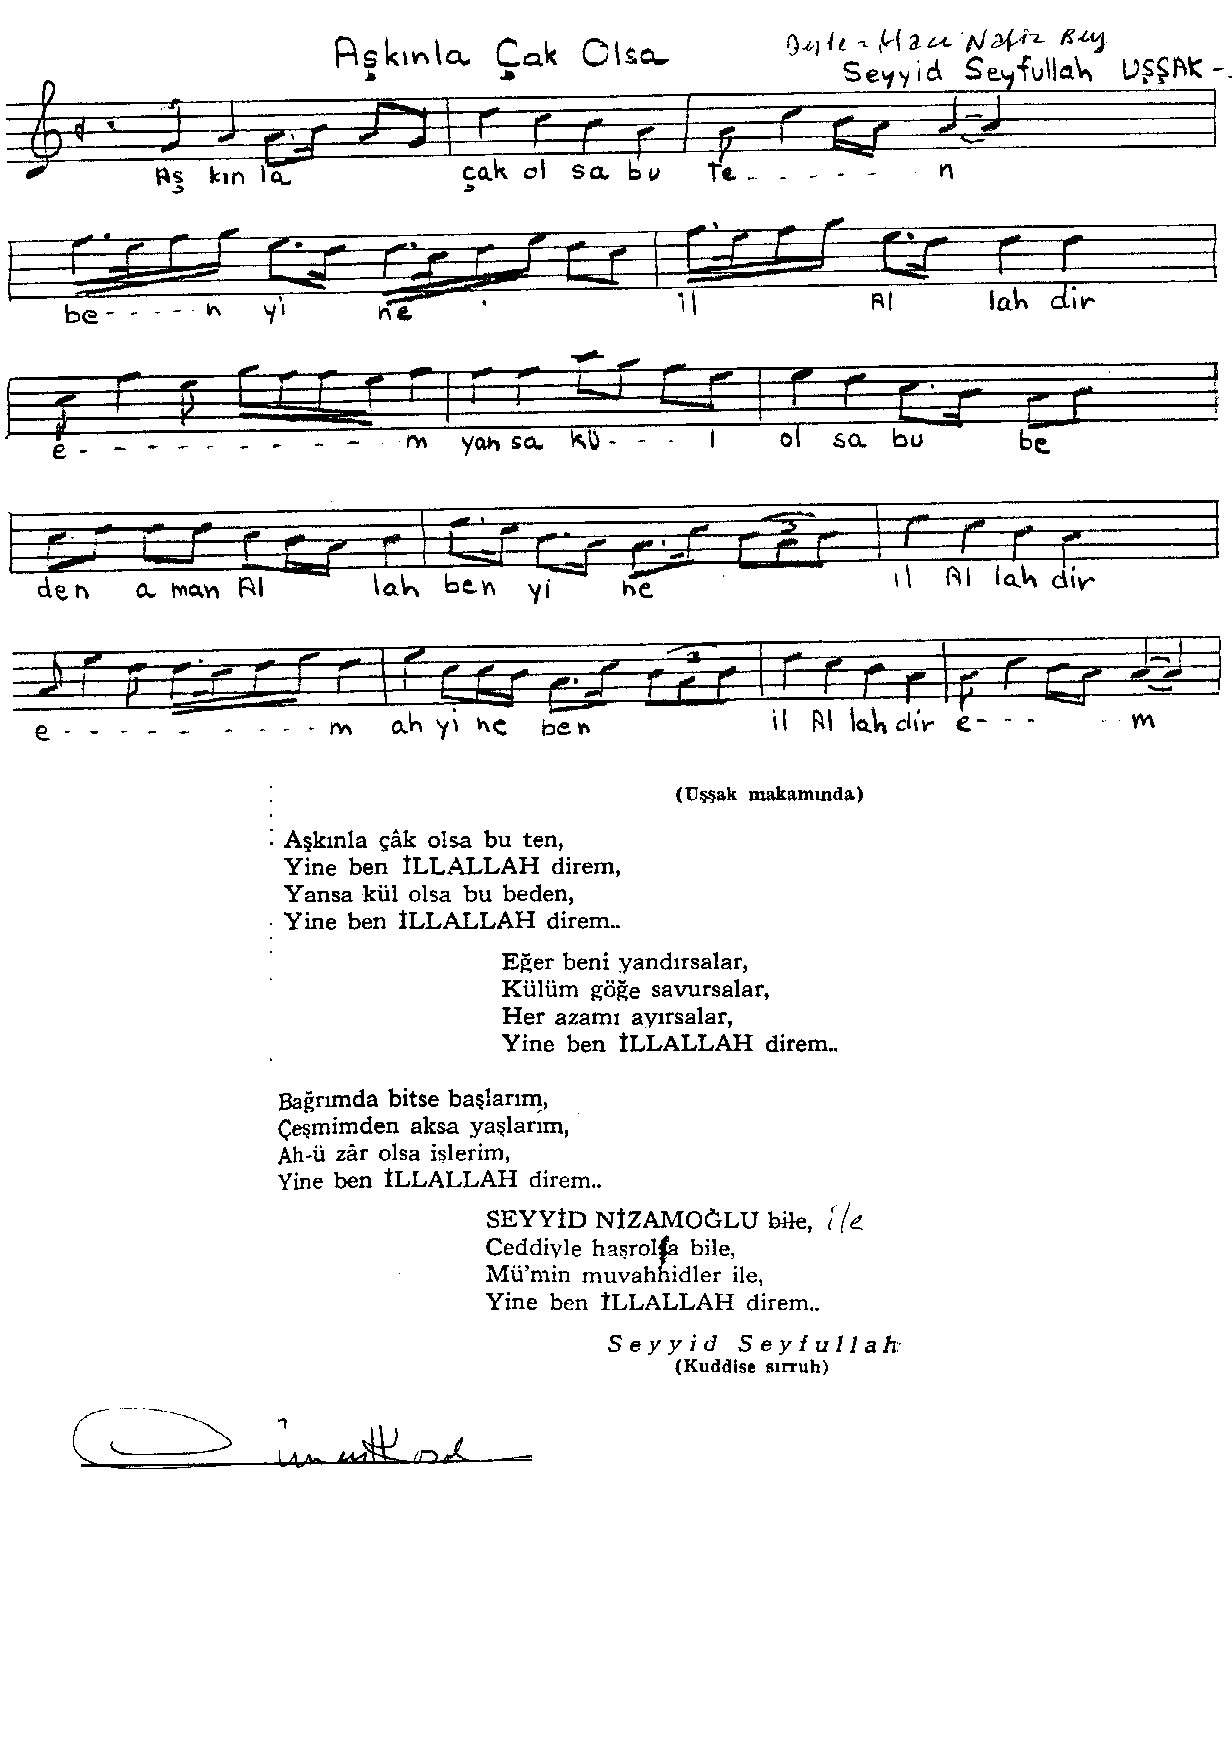 Aşkınla Çak Olsa
Beste = Hacı Nafiz Bey
Seyyid Seyfullah UŞŞAK -
Aş kın la çak ol sa bu Te - - - - - - n
be - - - - - n yi ne il Al lah dir
e - - - - - - - - - - m yan sa kü - - - l ol sa bu be
den a man Al lah ben yi ne il Al lah dir
e - - - - - - - - - - m ah yi ne ben il Al lah dir e - - - - m
(Uşşak makamında)
Aşkınla çâk olsa bu ten,
Yine ben İLLALLAH direm,
Yansa kül olsa bu beden,
Yine ben İLLALLAH direm..
Eğer beni yandırsalar,
Külüm göğe savursalar,
Her azamı ayırsalar,
Yine ben İLLALLAH direm..
Bağrımda bitse başlarım,
Çeşmimden aksa yaşlarım,
Ah-ü zâr olsa işlerim,
Yine ben İLLALLAH direm..
SEYYİD NİZAMOĞLU bile, ile
Ceddiyle haşrolsa bile,
Mü'min muvahhidler ile,
Yine ben İLLALLAH direm..
Seyyid Seyfullah
(Kuddise sırruh)